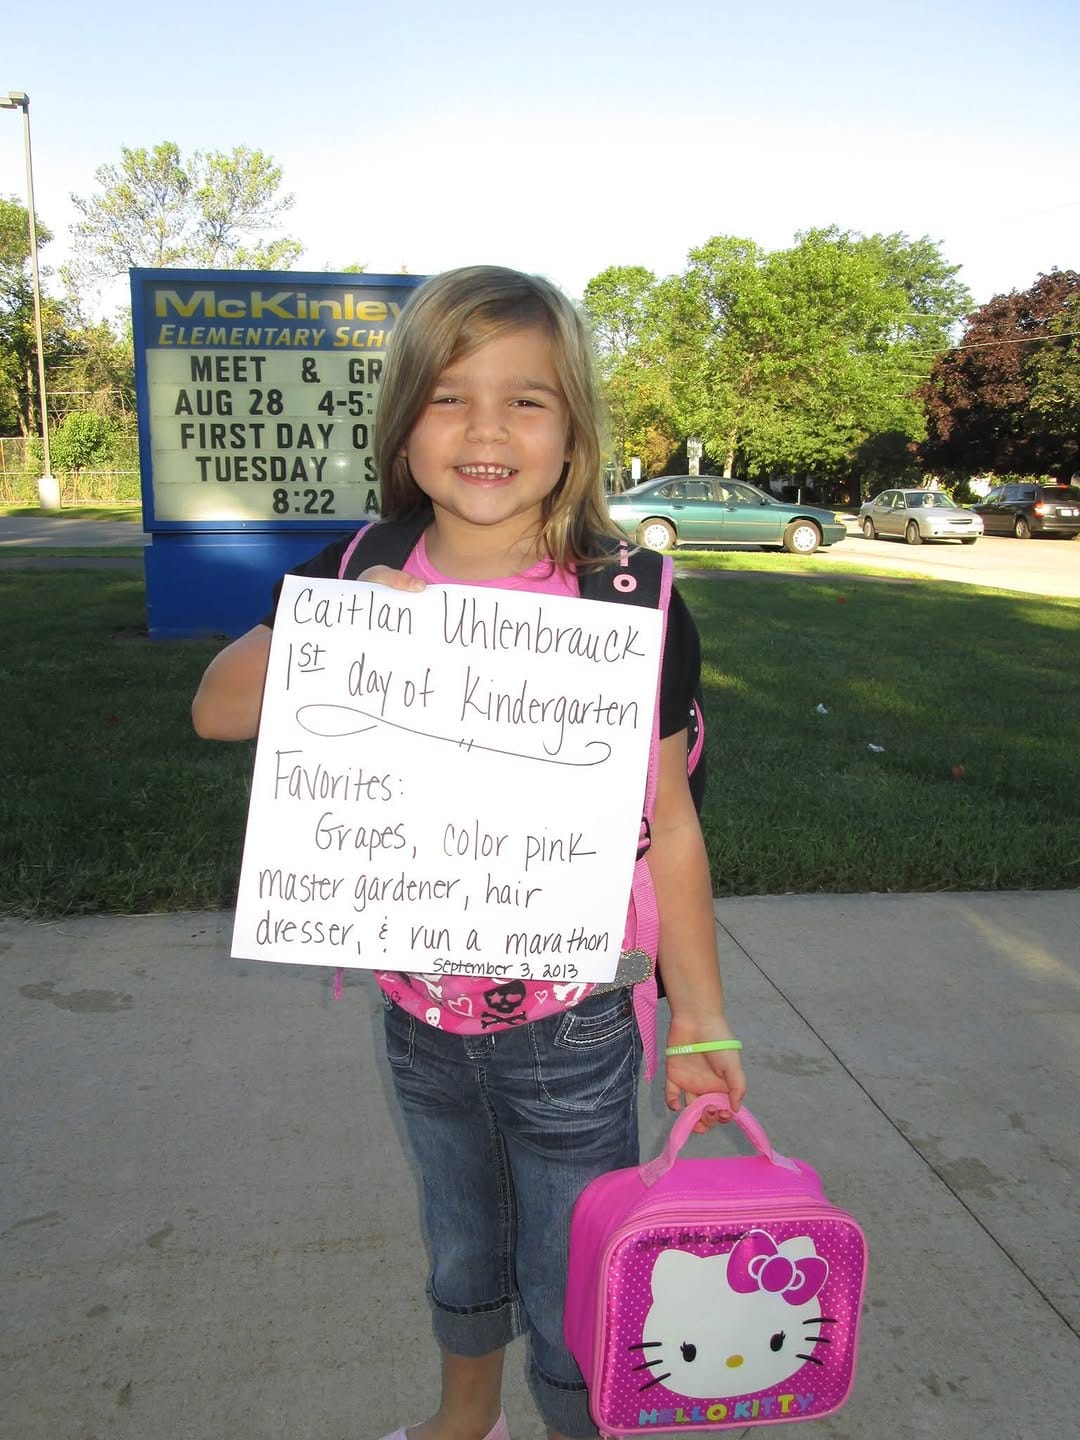 McKinley
ELEMENTARY SCHO
MEET & GR
AUG 28 4-5:
FIRST DAY O
TUESDAY S
8:22 A
Caitlan Uhlenbrauck
1st day of Kindergarten
Favorites:
Grapes, color pink
master gardener, hair
dresser, & run a marathon
September 3, 2013
Caitlan Uhlenbrauck
HELLO KITTY